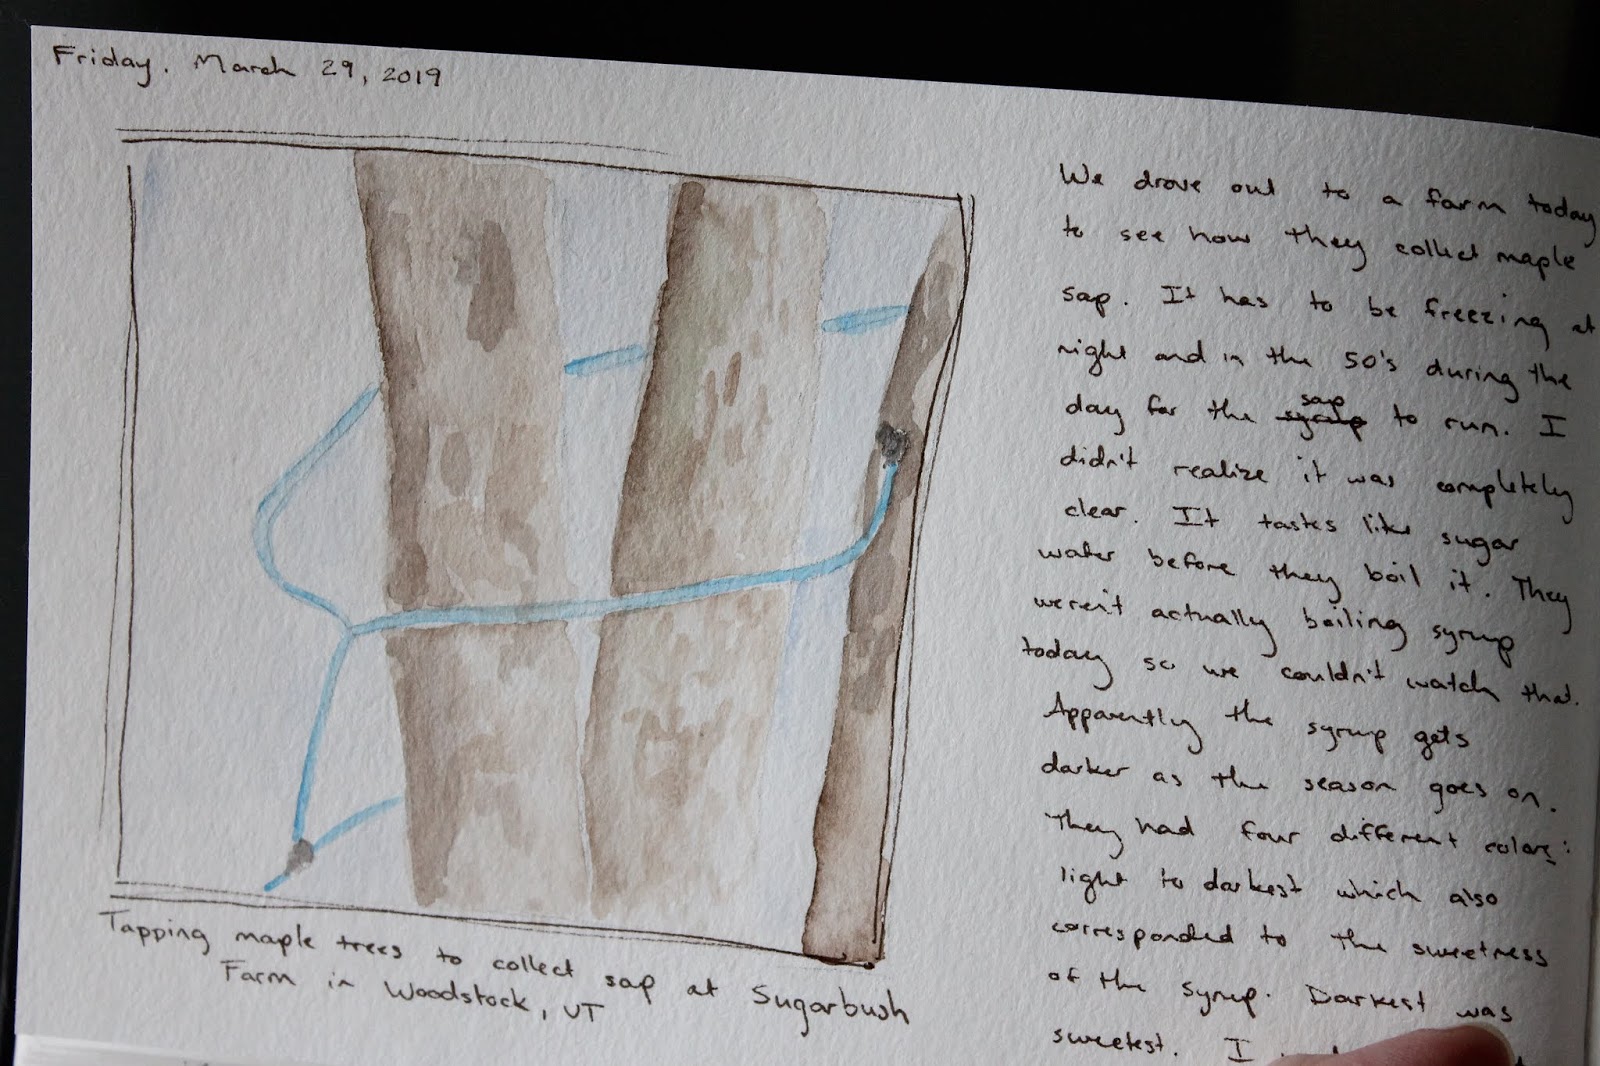 Friday. March 29, 2019
We drove out to a farm today
to see how they collect maple
sap. It has to be freezing at
night and in the 50's during the
day for the syrup sap to run. I
didn't realize it was completely
clear. It tastes like sugar
water before they boil it. They
weren't actually boiling syrup
today so we couldn't watch that.
Apparently the syrup gets
darker as the season goes on.
They had four different colors:
light to darkest which also
corresponded to the sweetness
of the syrup. Darkest was
sweetest. I
Tapping maple trees to collect sap at Sugarbush
Farm in Woodstock, VT